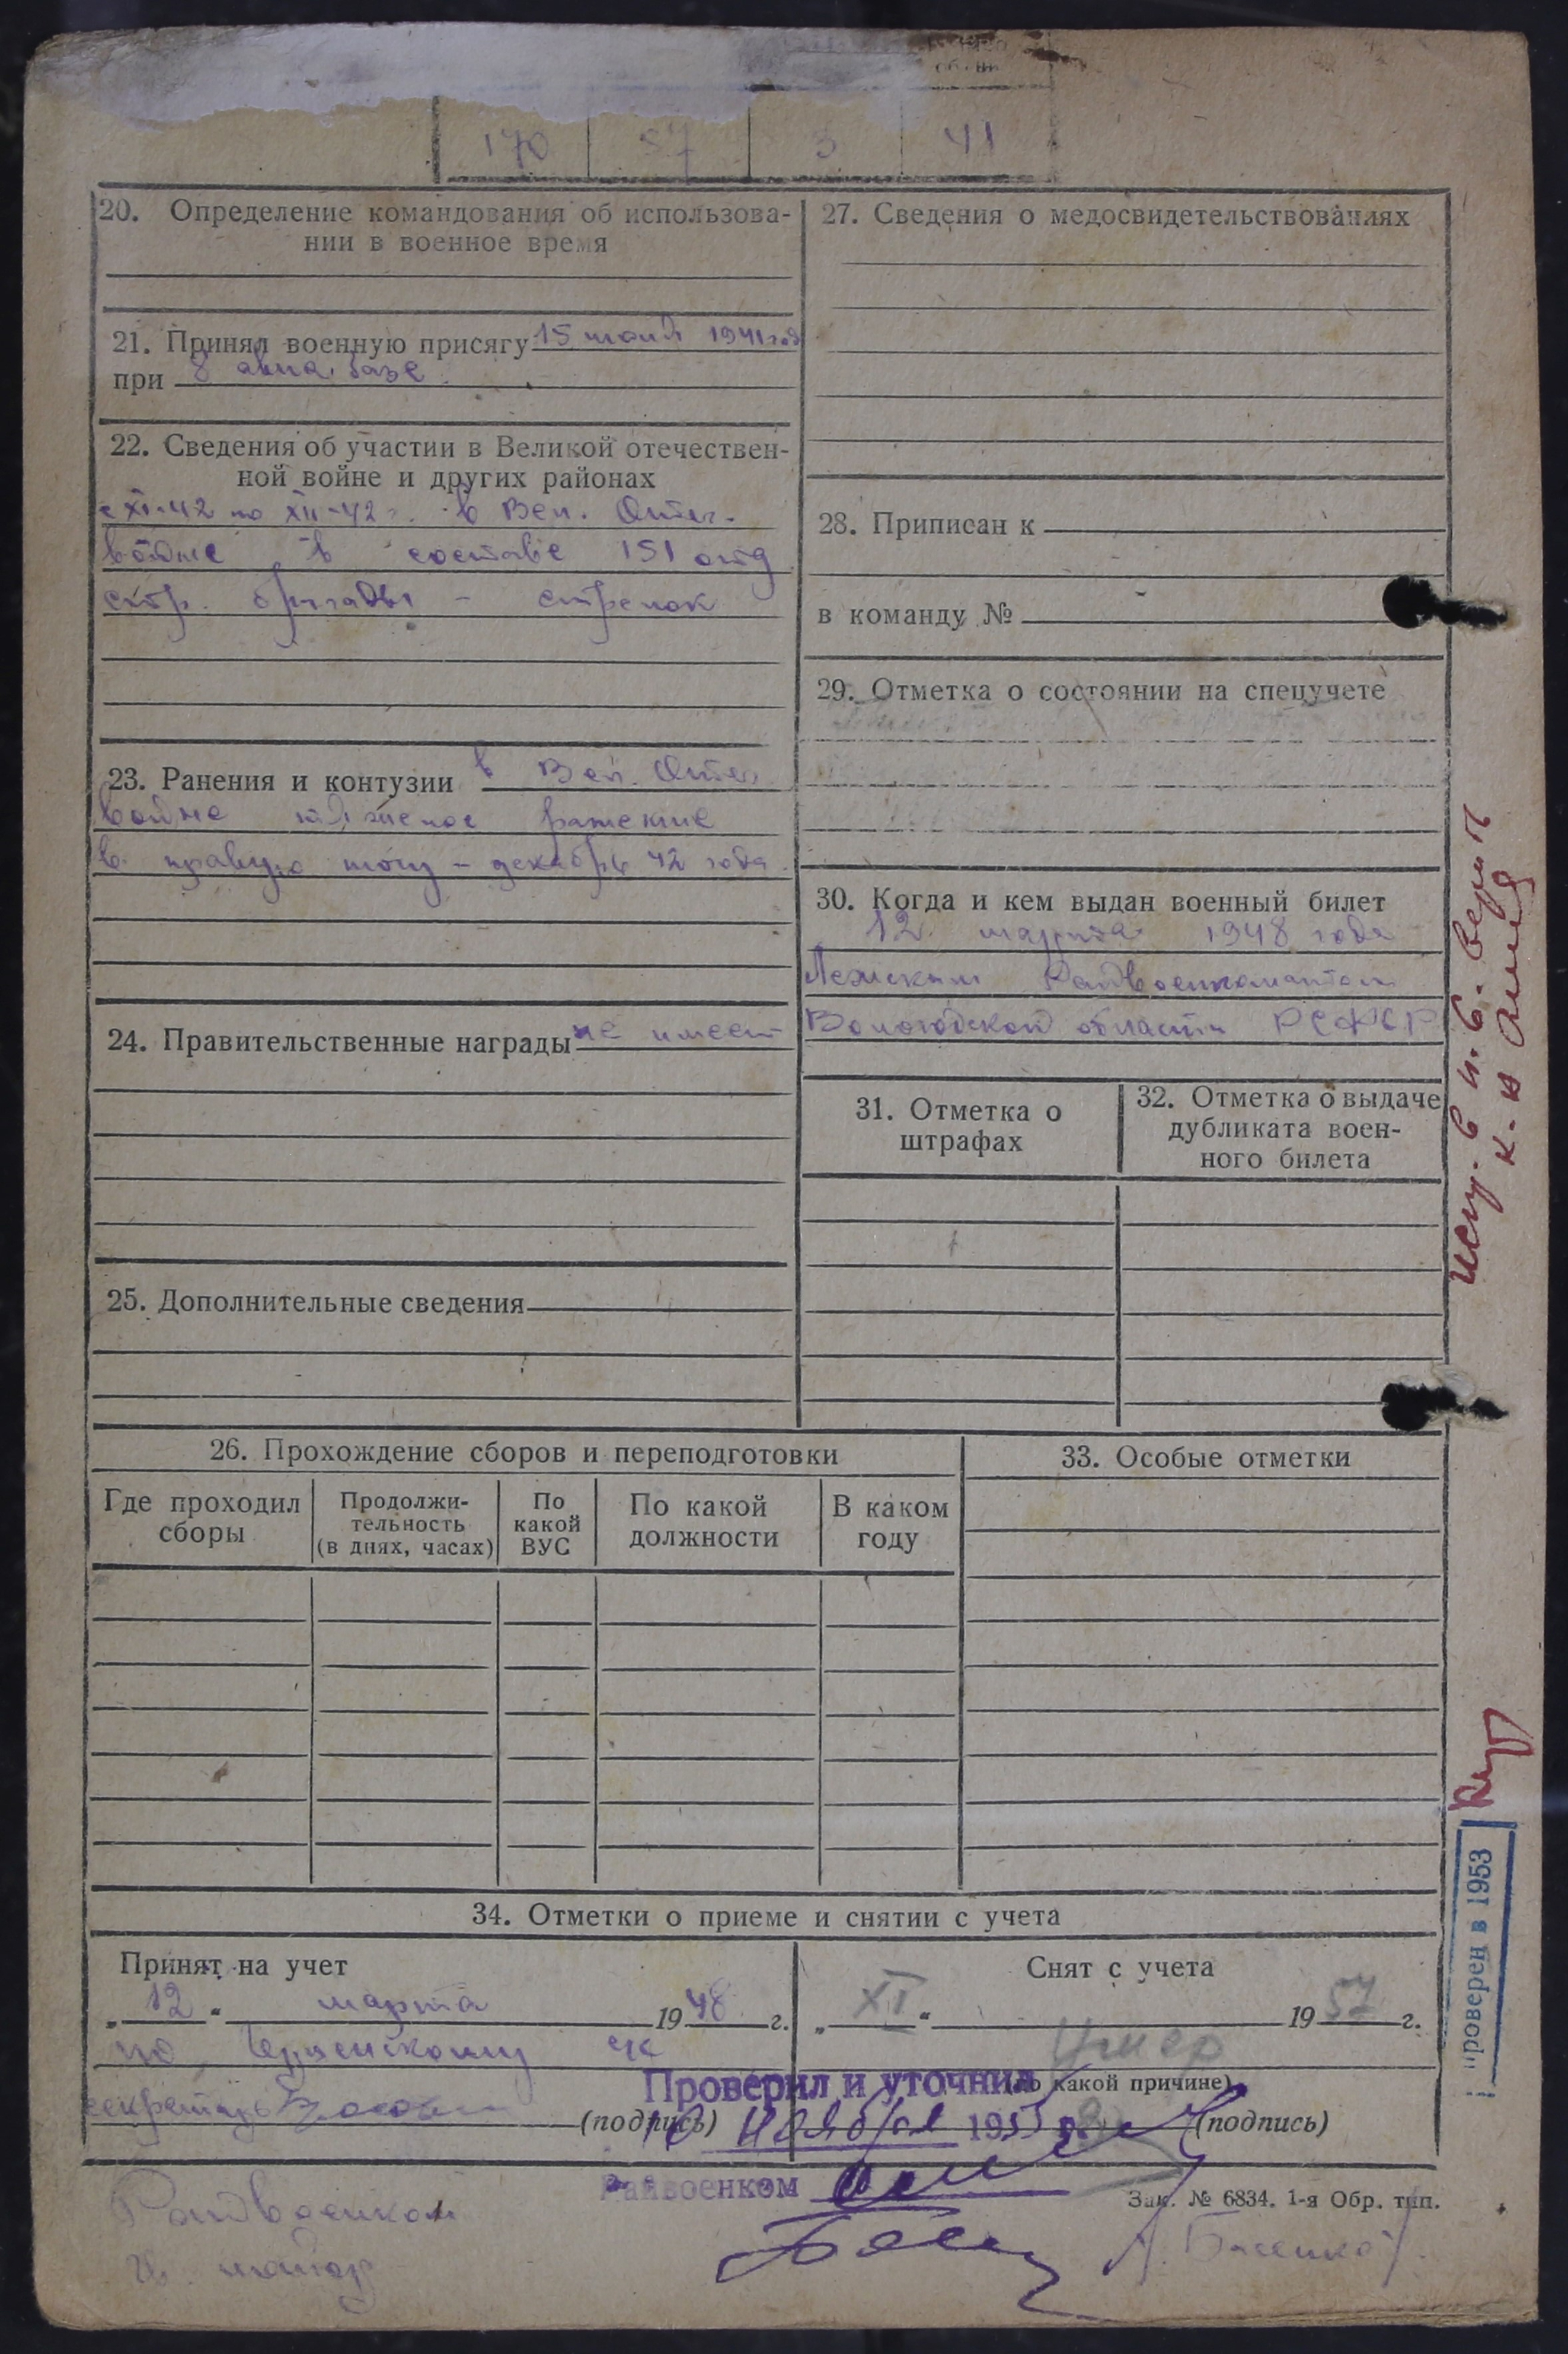 170 57 3 41
20. Определение командования об использова-
нии в военное время
21. Принял военную присягу 15 июня 1941 год
при 8 авиа. базе.
22. Сведения об участии в Великой отечествен-
ной войне и других районах
с XI-42 по XII-42 г. в Вел. Отеч.
войне в составе 151 отд
стр. бригады - стрелок
23. Ранения и контузии в Вел. Отеч
войне тяжелое ранение
в правую ногу - декабрь 42 года.
24. Правительственные награды не имеет
25. Дополнительные сведения
27. Сведения о медосвидетельствованиях
28. Приписан к
в команду №
29. Отметка о состоянии на спецучете
30. Когда и кем выдан военный билет
12 марта 1948 года
Лежским Райвоенкоматом
Вологодской области РСФСР
31. Отметка о
штрафах
32. Отметка о выдаче
дубликата воен-
ного билета
26. Прохождение сборов и переподготовки
Где проходил
сборы
Продолжи-
тельность
(в днях, часах)
По
какой
ВУС
По какой
должности
В каком
году
33. Особые отметки
34. Отметки о приеме и снятии с учета
Принят на учет
„12“ марта 1948 г.
по
секретарь
(подпись)
Снят с учета
„XI“ 1957 г.
Умер
(по какой причине)
(подпись)
Проверил и уточнил
ноября 195
Райвоенком
Зак. № 6834. 1-я Обр. тип.
Райвоенком
майор
роверен в 1953